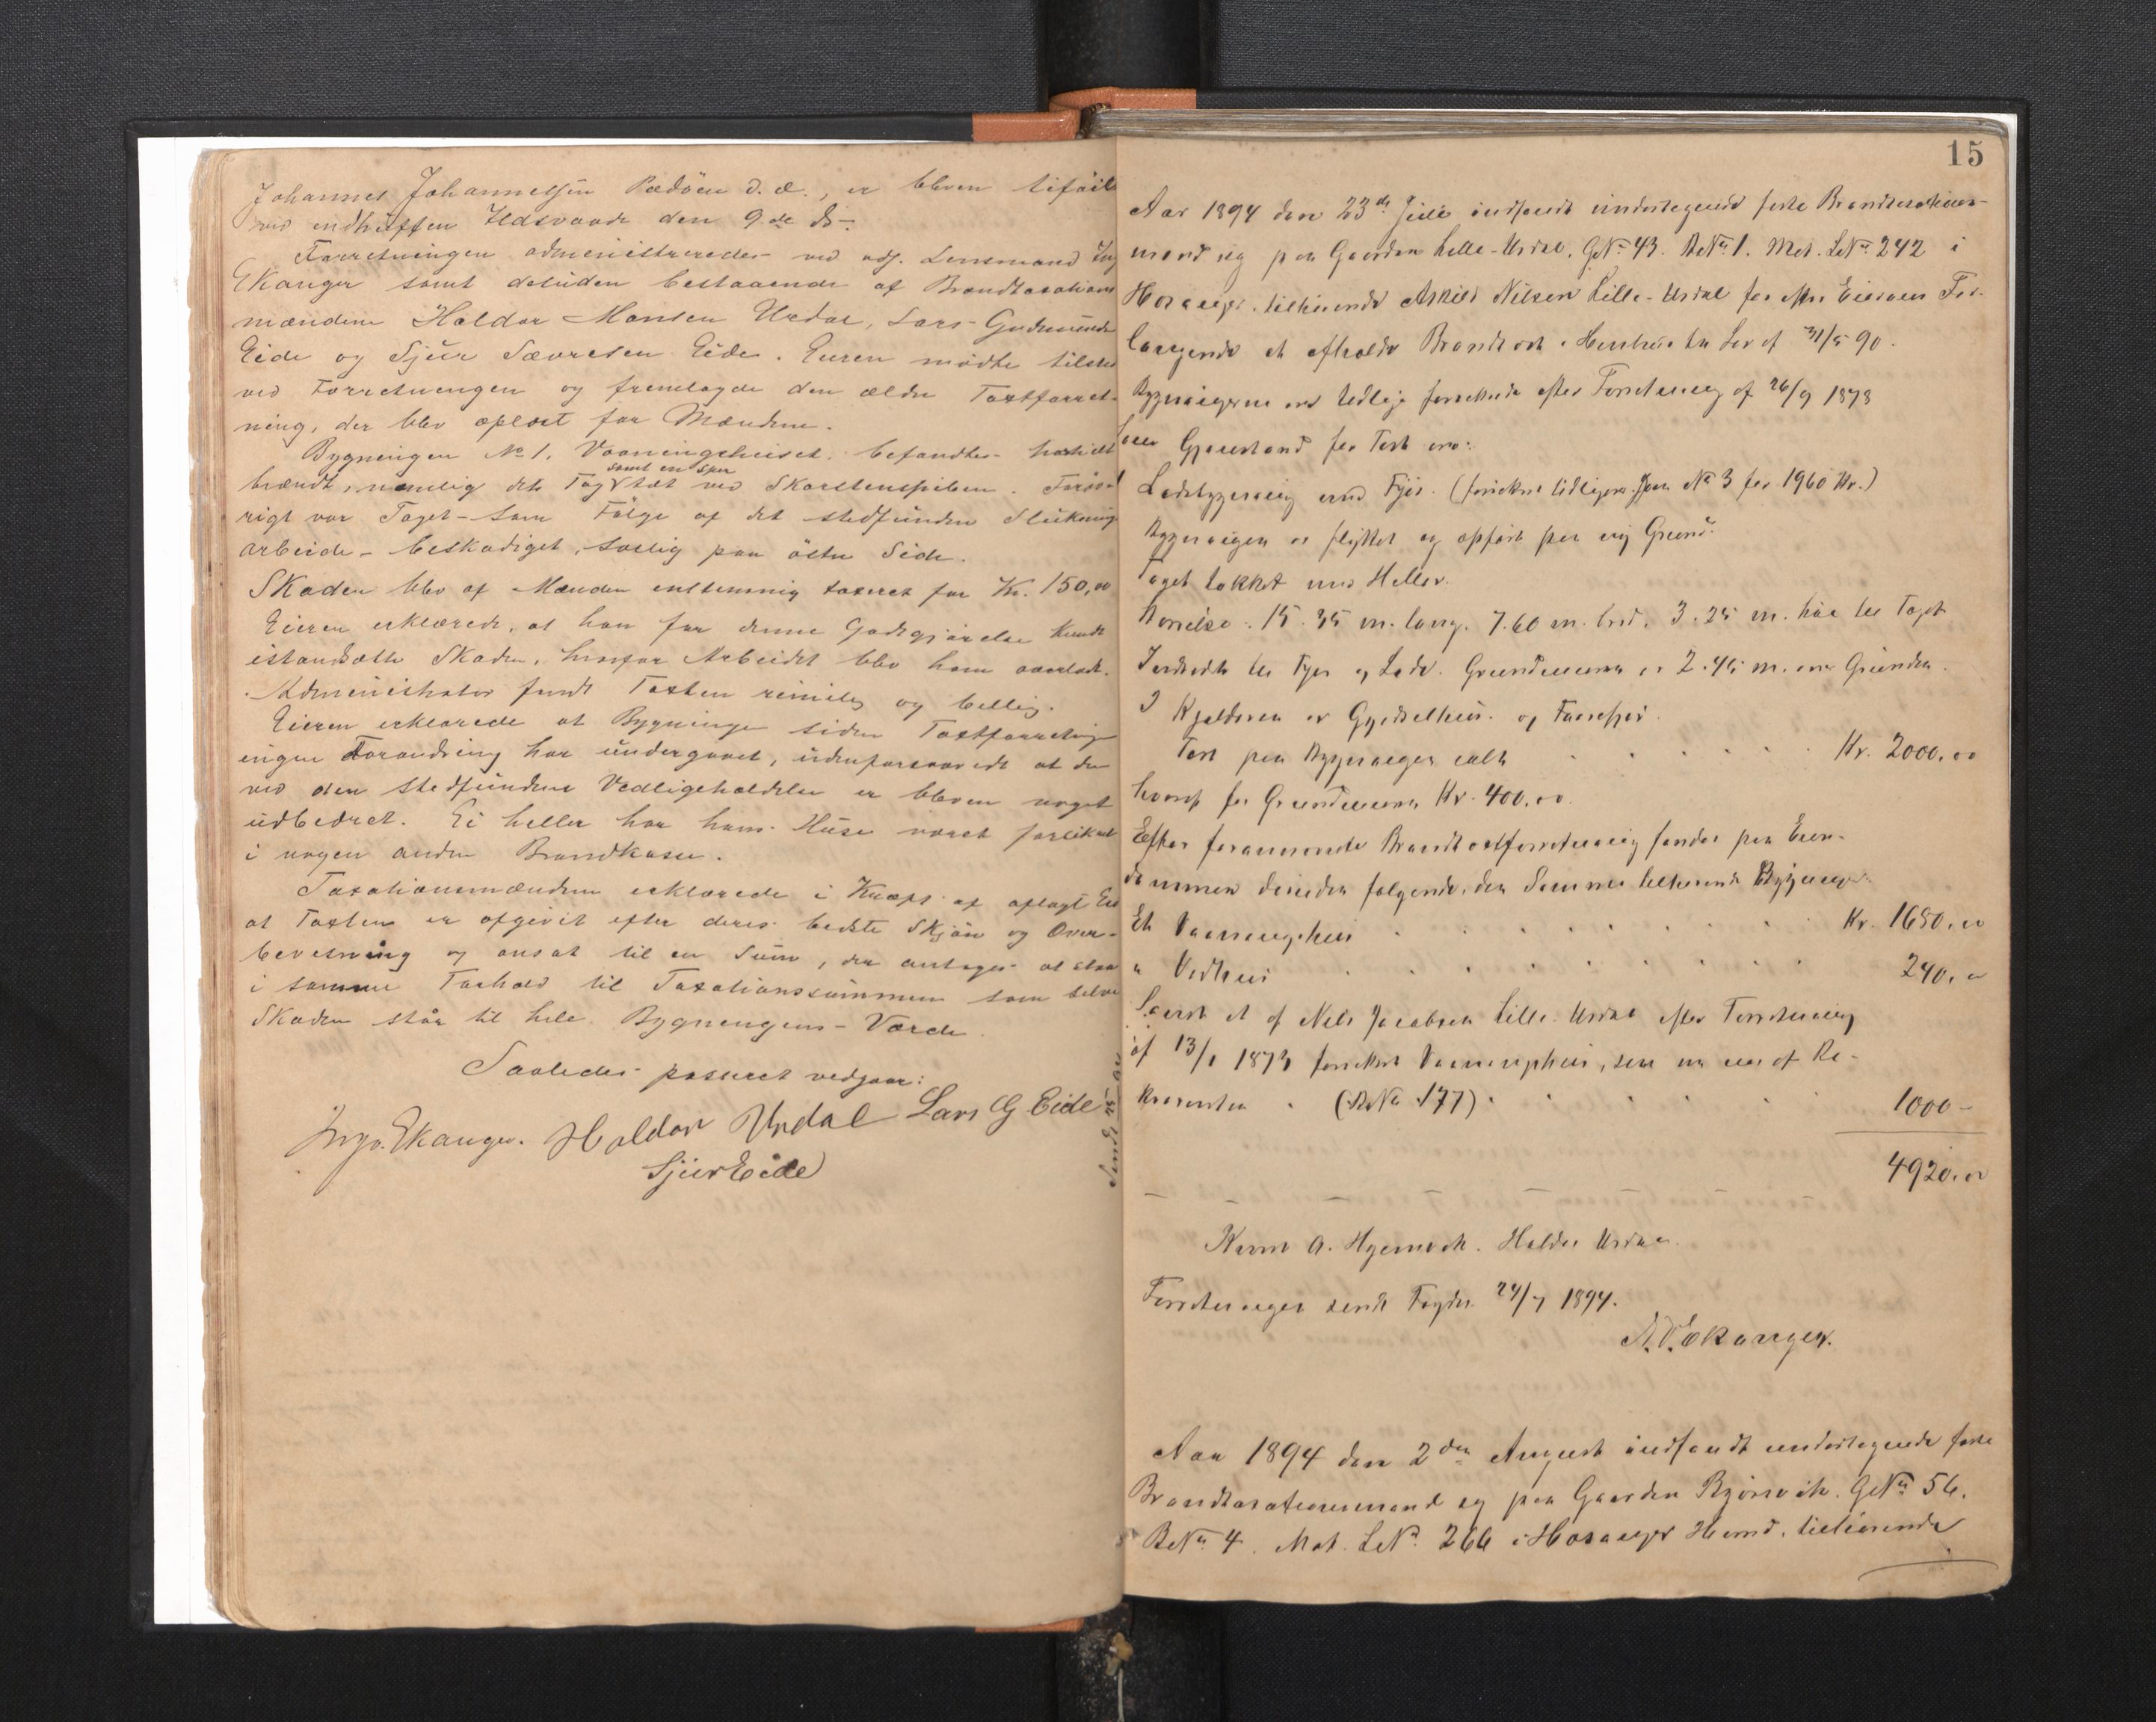 Johannes Johannessen Pedøen d. æ., er bleven tiføiet
ved indtruffen Ildsvaade den 9de ds.
Forretningen administreredes ved adj. Lensmand Ing
Ekanger samt desuden bestaaende af Brandtaxations
mændene Haldor Monsen Urdal, Lars Gudmunds
Eide og Sjur Sævresen Eide. Eieren mødte tilstede
ved Forretningen og fremlagde den ældre Taxtforret-
ning, der blev oplæst for Mændene.
Bygningen No 1, Vaaningshuset, befandtes partielt
brændt, nemlig dets Tag tæt ved Skorstenspiben.
samt en Sper
rigt var Taget – som Følge af det stedfundne Sluknings
arbeide – beskadiget, særlig paa østre Side.
Skaden blev af Mændene enstemmig taxeret for Kr. 150,00
Eieren erklærede, at han for denne Godtgjørelse kunde
istandsætte Skaden, hvorfor Arbeidet blev ham overladt.
Administrator fandt Taxten rimelig og billig.
Eieren erklærede at Bygningen siden Taxtforretnin
ingen Forandring har undergaaet, uden forsaavidt at de
ved den stedfundne Vedligeholdelse er bleven noget
udbedret. Ei heller har hans Huse været forsikret
i nogen anden Brandkasse.
Taxationsmændene erklærede i Kraft af aflagt Ed
at Taxten er afgivet efter deres bedste Skjøn og Over-
bevisning og ansat til en Sum, der antages at staa
i samme Forhold til Taxationssummen som selve
Skaden står til hele Bygningens Værdi.
Saaledes passeret vedgaar:
Ingv. Ekanger. Haldor Urdal Lars G Eide
Sjur Eide
15
Aar 1894 den 23de Juli indfandt undertegnede faste Brandtaxations-
mænd sig paa Gaarden Lille-Urdal, GNo 43. BNo 1. Mat. LNo 242 i
Hosanger, tilhørende Askild Nilsen Lille-Urdal for efter Eierens For-
langende at afholde Brandtaxt i Henhold til Lov af 31/5 90.
Bygningerne ere tidligere forsikrede efter Forretning af 26/9 1878
Gjenstand for Taxt var:
Ladebygning med Fjøs. (forsikret tidligere som No 3 for 1960 Kr.)
Bygningen er flyttet og opført paa ny Grund.
Taget tækket med Heller.
Størrelse: 15.35 m. lang. 7.60 m. bred. 3.25 m. høi til Taget
Indredet til Fjøs og Lade. Grundmuren er 2.45 m. over Grunden.
I Kjelderen er Gjødselhus og Faarefjøs.
Taxt paa Bygningen ialt . . . . . Kr. 2000,00
hvoraf for Grundmuren Kr. 400,00.
Efter foranstaaende Brandtaxtforretning fandes paa Eien-
dommen desuden følgende, den Samme tilhørende Bygninger:
Et Vaaningshus . . . . . . Kr. 1680,00
" Vedhus . . . . . . 240,00
Samt et af Nels Jacobsen Lille-Urdal efter Forretning
af 13/1 1873 forsikret Vaaningshus, som nu eies af Re-
kvirenten . (BNo 177) . . . . . 1000 –
4920,00
Knut A. Hjelmvik. Haldor Urdal.
Forretningen sendt Fogden 24/7 1894.
A. V. Ekanger.
Aar 1894 den 2den August indfandt undertegnede faste
Brandtaxationsmænd sig paa Gaarden Bjørsvik. GNo 56.
BNo 4. Mat. LNo 266 i Hosanger Herred, tilhørende